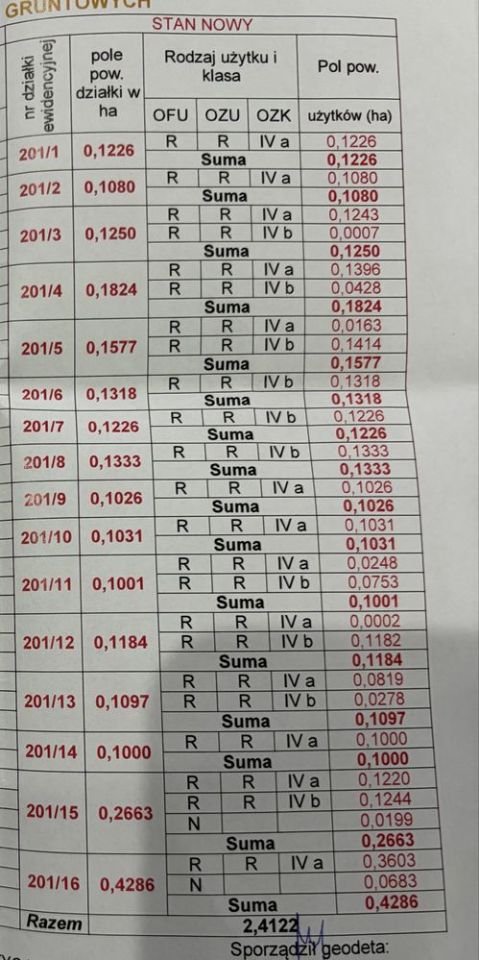 GRUNTOWYCH
STAN NOWY
nr działki ewidencyjnej
pole pow. działki w ha
Rodzaj użytku i klasa
Pol pow.
OFU OZU OZK użytków (ha)
201/1 0,1226 R R IV a 0,1226
Suma 0,1226
201/2 0,1080 R R IV a 0,1080
Suma 0,1080
201/3 0,1250 R R IV a 0,1243
R R IV b 0,0007
Suma 0,1250
201/4 0,1824 R R IV a 0,1396
R R IV b 0,0428
Suma 0,1824
201/5 0,1577 R R IV a 0,0163
R R IV b 0,1414
Suma 0,1577
201/6 0,1318 R R IV b 0,1318
Suma 0,1318
201/7 0,1226 R R IV b 0,1226
Suma 0,1226
201/8 0,1333 R R IV b 0,1333
Suma 0,1333
201/9 0,1026 R R IV a 0,1026
Suma 0,1026
201/10 0,1031 R R IV a 0,1031
Suma 0,1031
201/11 0,1001 R R IV a 0,0248
R R IV b 0,0753
Suma 0,1001
201/12 0,1184 R R IV a 0,0002
R R IV b 0,1182
Suma 0,1184
201/13 0,1097 R R IV a 0,0819
R R IV b 0,0278
Suma 0,1097
201/14 0,1000 R R IV a 0,1000
Suma 0,1000
201/15 0,2663 R R IV a 0,1220
R R IV b 0,1244
N 0,0199
Suma 0,2663
201/16 0,4286 R R IV a 0,3603
N 0,0683
Suma 0,4286
Razem 2,4122
Sporządził geodeta: